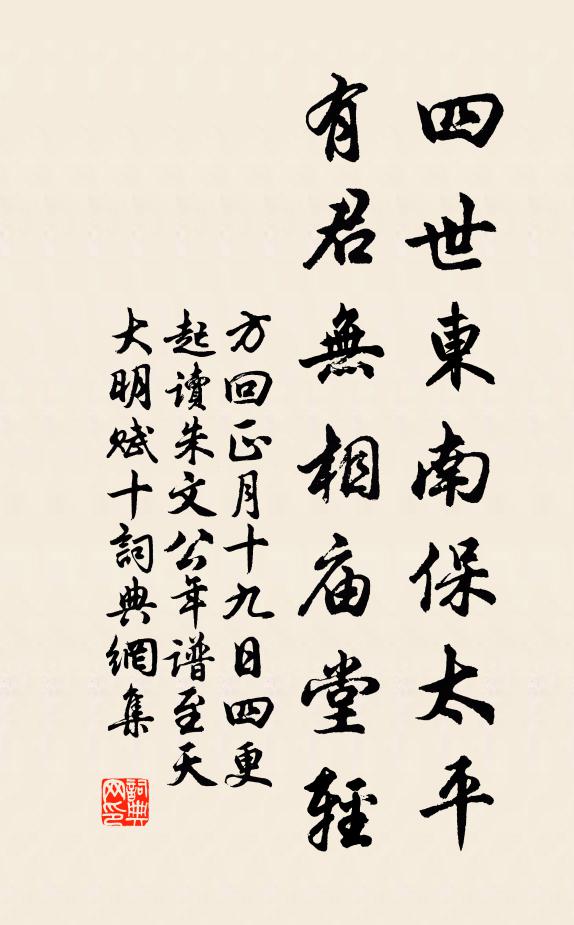 四世東南保太平
有君無相庙堂輕
方回正月十九日四更
起讀朱文公年谱至天
大明赋十詞典網集
詞典网印